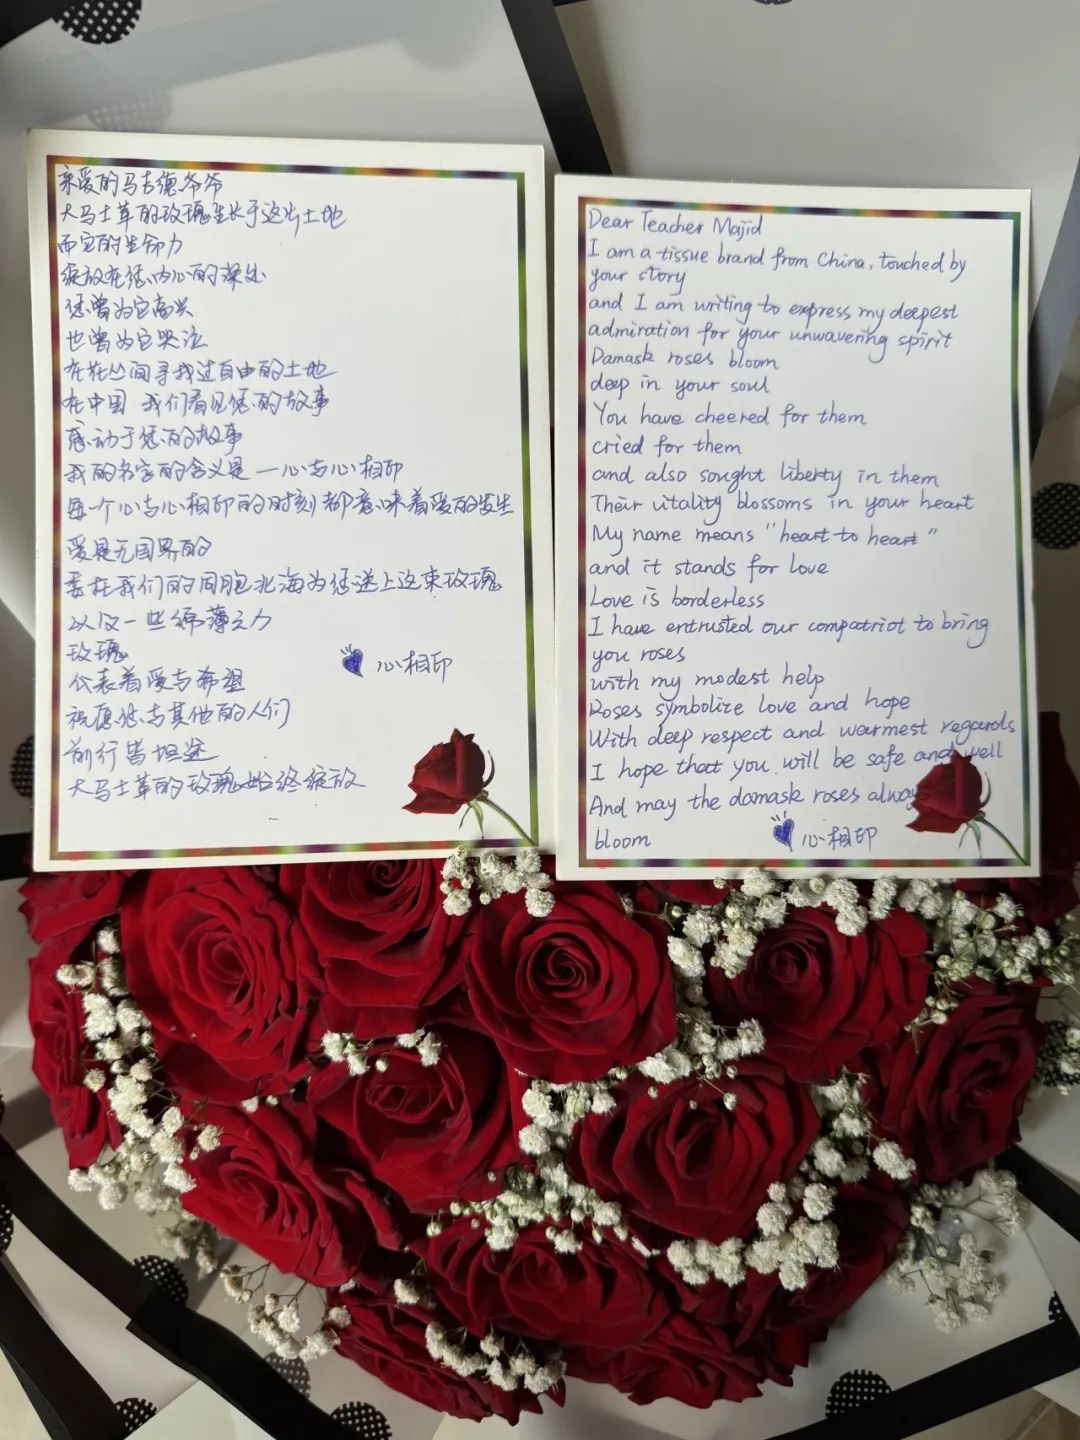 亲爱的马吉德爷爷
大马士革的玫瑰生长于这片土地
而它的生命力
绽放在您内心的深处
您曾为它高兴
也曾为它哭泣
在花丛间寻找过自由的土地
在中国 我们看见您的故事
感动于您的故事
我的名字的含义是 一心与心相印
每一个心与心相印的时刻都意味着爱的发生
爱是无国界的
委任我们的同胞北海为您送上这束玫瑰
以及一些绵薄之力
玫瑰
代表着爱与希望
祝愿您与其他的人们
前行皆坦途
大马士革的玫瑰始终绽放
心相印
Dear Teacher Majid
I am a tissue brand from China, touched by
your story
and I am writing to express my deepest
admiration for your unwavering spirit
Damask roses bloom
deep in your soul
You have cheered for them
cried for them
and also sought liberty in them
Their vitality blossoms in your heart
My name means "heart to heart"
and it stands for love
Love is borderless
I have entrusted our compatriot to bring
you roses
with my modest help
Roses symbolize love and hope
With deep respect and warmest regards
I hope that you will be safe and well
And may the damask roses alway
bloom
心相印